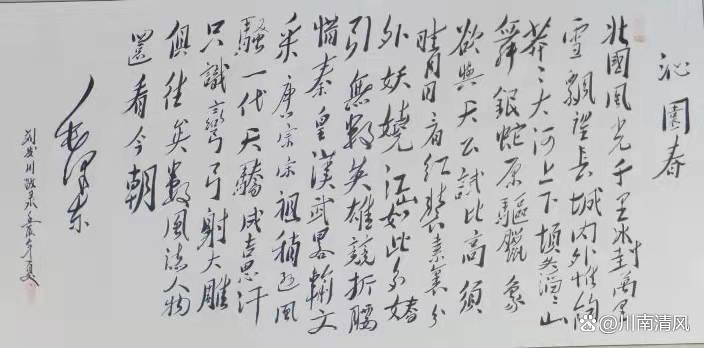 沁園春
北國風光千里冰封萬里
雪飄望長城内外惟
莽〻大河上下頓失滔〻山
舞銀蛇原驅臘象
欲與天公試比高須
晴日看紅裝素裹分
外妖嬈江山如此多嬌
引無數英雄競折腰
惜秦皇漢武畧輸文
采唐宗宋祖稍遜風
騷一代天驕成吉思汗
只識彎弓射大雕
俱往矣數風流人物
還看今朝
毛澤東
川敬录年夏
@川南清风